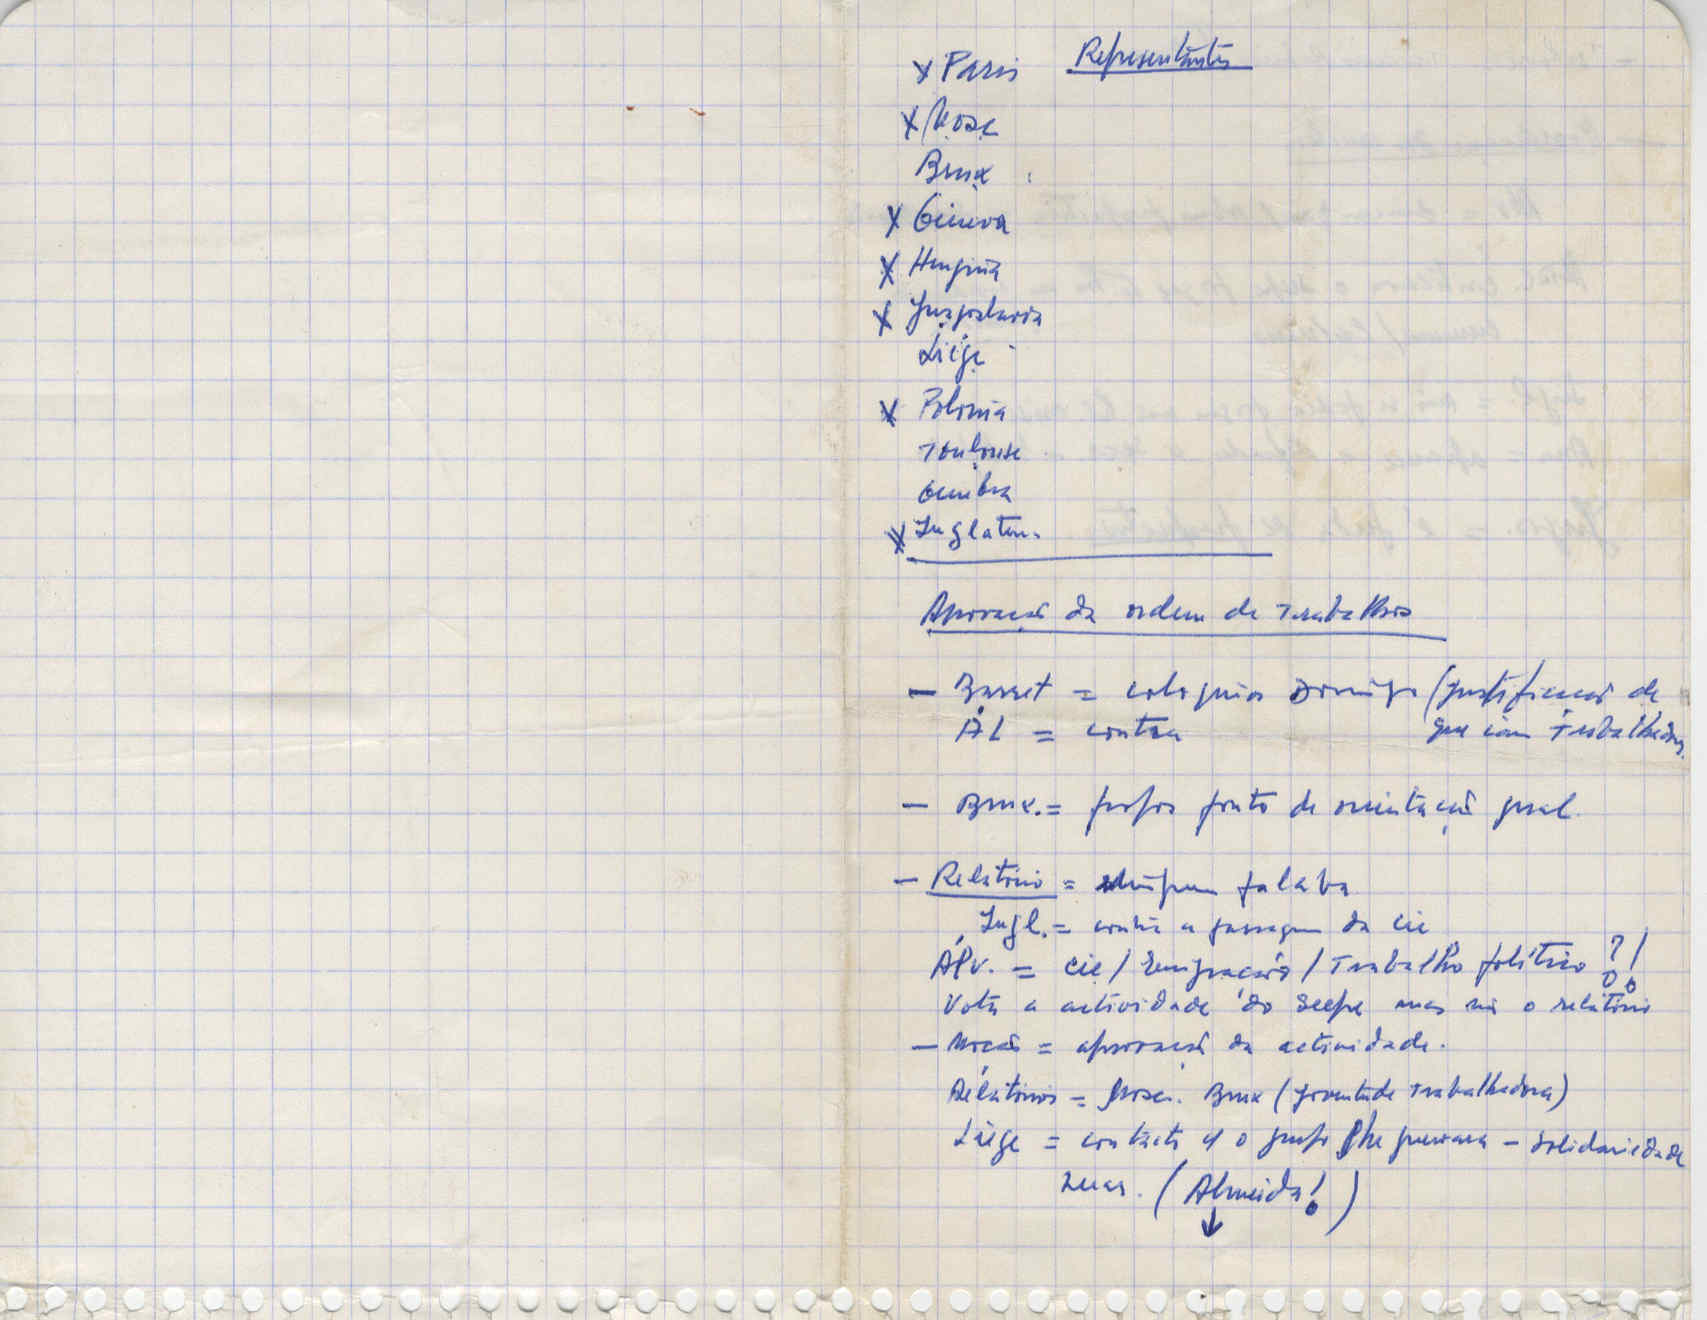 Representantes
x Paris
x Mosc
Brux
x Géneva
x Hungria
x Jugoslavia
Liège
x Polonia
Toulouse
Coimbra
x Inglaterr.
Aprovação da ordem de Trabalhos
— Barret = coloquios Domingo (justificação de
que iam Trabalhadores
AL = contra
— Brux. = propos ponto de orientação geral.
— Relatório = ninguem falava
Ingl. = contra a passagem da cie
Álv. = cie / Emigração / Trabalho político ?!
Vota a actividade do seepe mas não o relatório
— Moção = aprovação da actividade.
Relatórios = Mosc. Brux (Joventude Trabalhadora)
Liège = contacto c/ o grupo Che guevara — Solidariedade
(Almeida!)
↓